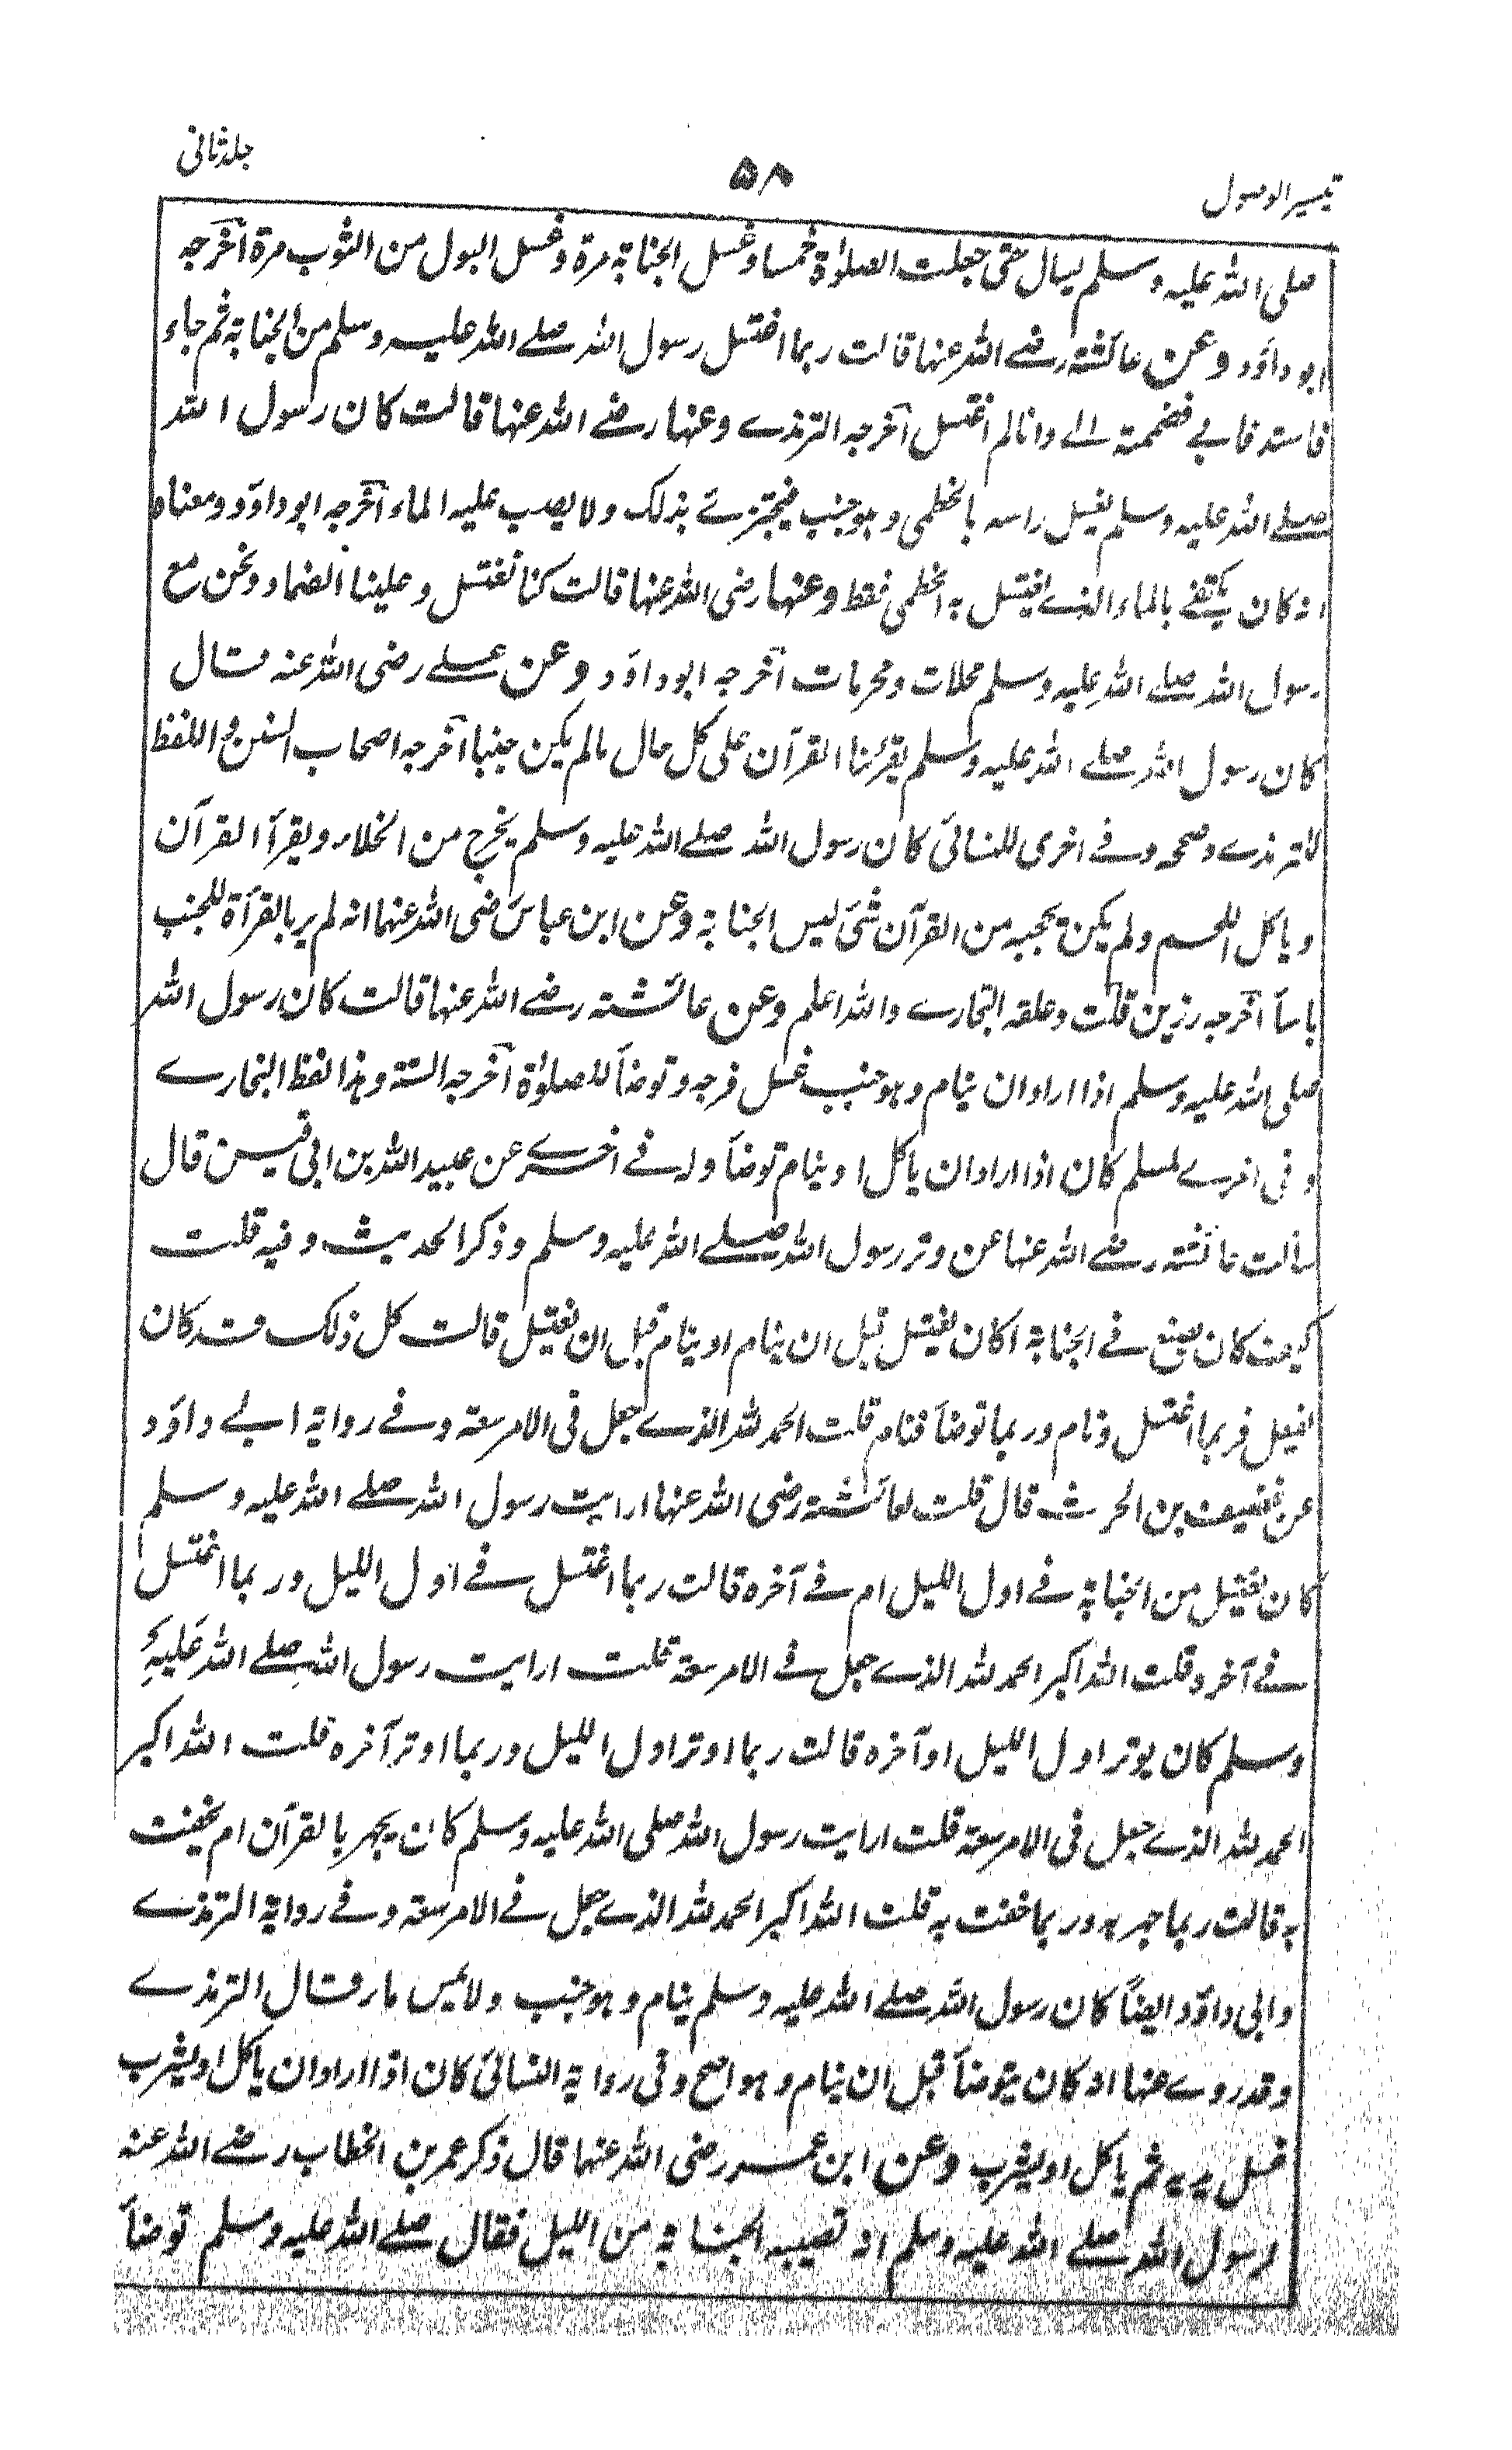 تيسير الوصول
۵۸
جلد ثانی
صلی الله علیه وسلم یسال حتی جعلت الصلوٰة خمسا وغسل الجنابة مرة وغسل البول من الثوب مرة اخرجه
ابو داؤد وعن عائشة رضے الله عنها قالت ربما اغتسل رسول الله صلے الله علیه وسلم من الجنابة ثم جاء
فاستدفا بے فضممته الے وانا لم اغتسل اخرجه الترمذے وعنها رضے الله عنها قالت کان رسول الله
صلے الله علیه وسلم یغسل راسه بالخطمی وهو جنب فیجتزئے بذلک ولا یصب علیه الماء اخرجه ابو داؤد ومعناه
انه کان یکتفے بالماء الذے یغتسل به الخطمی فقط وعنها رضی الله عنها قالت کنا نغتسل وعلینا الضماد ونحن مع
رسول الله صلے الله علیه وسلم محلات ومحرمات اخرجه ابو داؤد وعن علے رضی الله عنه قال
کان رسول الله صلے الله علیه وسلم یقرئنا القرآن علی کل حال مالم یکن جنبا اخرجه اصحاب السنن واللفظ
للترمذے وصححه وفے اخری للنسائی کان رسول الله صلے الله علیه وسلم یخرج من الخلاء ویقرأ القرآن
ویاکل اللحم ولم یکن یحجبه من القرآن شئ لیس الجنابة وعن ابن عباس رضی الله عنهما انه لم یر بالقرآة للجنب
باسآ اخرجه رزین قلت وعلقه البخارے والله اعلم وعن عائشة رضے الله عنها قالت کان رسول الله
صلی الله علیه وسلم اذا اراد ان ینام وهو جنب غسل فرجه وتوضآ للصلوٰة اخرجه الستة وهذا لفظ البخارے
وفی اخرے لمسلم کان اذا اراد ان یاکل او ینام توضآ وله فے اخرے عن عبید الله بن ابی قیس قال
سألت عائشة رضے الله عنها عن وتر رسول الله صلے الله علیه وسلم وذکر الحدیث وفیه قلت
کیف کان یصنع فے الجنابة اکان یغتسل قبل ان ینام او ینام قبل ان یغتسل قالت کل ذلک قد کان
یفعل فربما اغتسل ونام وربما توضآ فنام قلت الحمد لله الذے جعل فی الامر سعة وفے روایة ابے داؤد
عن غضیف بن الحرث قال قلت لعائشة رضی الله عنها ارایت رسول الله صلے الله علیه وسلم
کان یغتسل من الجنابة فے اول اللیل ام فے آخره قالت ربما اغتسل فے اول اللیل وربما اغتسل
فے آخره قلت الله اکبر الحمد لله الذے جعل فے الامر سعة قلت ارایت رسول الله صلے الله علیه
وسلم کان یوتر اول اللیل او آخره قالت ربما اوتر اول اللیل وربما اوتر آخره قلت الله اکبر
الحمد لله الذے جعل فی الامر سعة قلت ارایت رسول الله صلی الله علیه وسلم کان یجهر بالقرآن ام یخفت
به قالت ربما جهر به وربما خفت به قلت الله اکبر الحمد لله الذے جعل فے الامر سعة وفے روایة الترمذے
وابی داؤد ایضاً کان رسول الله صلے الله علیه وسلم ینام وهو جنب ولا یمس ماء وقال الترمذے
وقد روے عنها انه کان یتوضآ قبل ان ینام وهو اصح وفی روایة النسائی کان اذا اراد ان یاکل او یشرب
غسل یدیه ثم یاکل او یشرب وعن ابن عمر رضی الله عنهما قال ذکر عمر بن الخطاب رضے الله عنه
لرسول الله صلے الله علیه وسلم انه تصیبه الجنابة من اللیل فقال صلے الله علیه وسلم توضآ